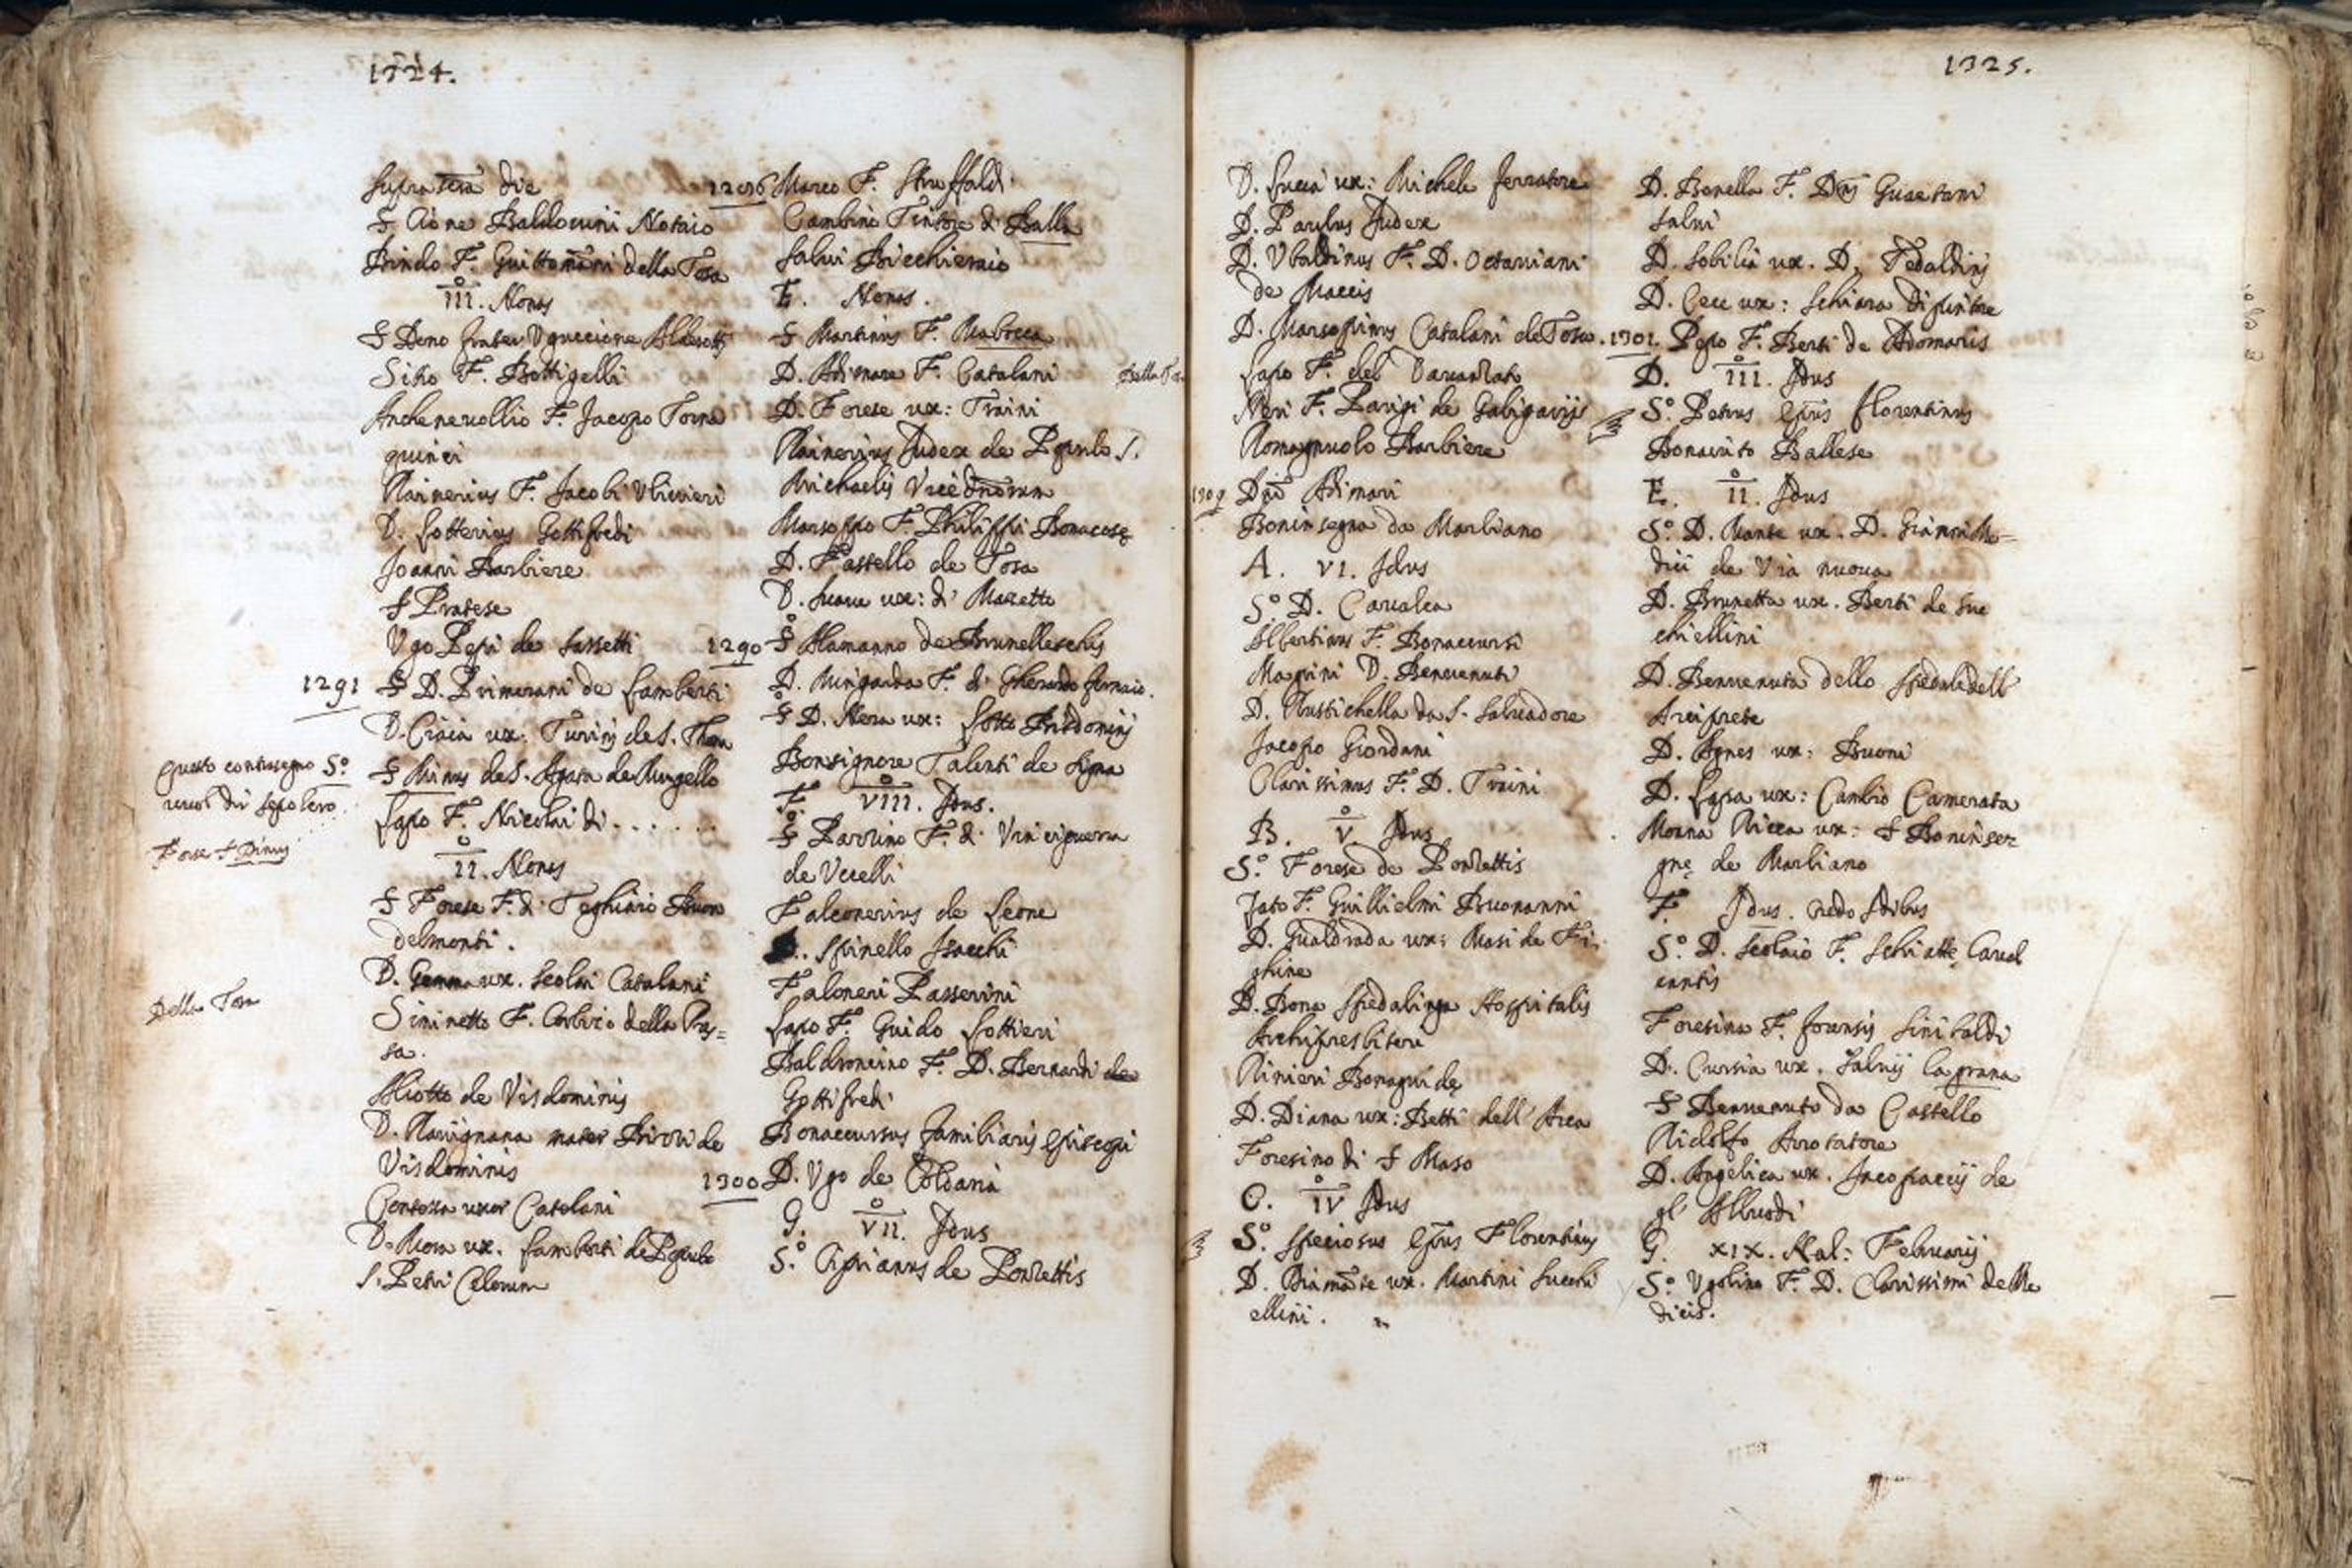 1324.
supra scrã die
S Cione Baldouini Notaio
Bindo F. Guittomãni della Tosa
III. Nonas
S Dono frater Vguccione Aldeotti
Sitio F. Bottigelli
Anchenevollio F. Jacopo Torna
quinci
Rainerius F. Jacobi Vlivieri
D. Lotterius Gottifredi
Joanni Barbiere
S Pratese
Vgo Pepi de Sassetti
1291 S D. Primerani de Lamberti
D. Ciaia ux: Turini de S. Thom
questo contrasegno Sº
vuol dir sepolcro
S Minus de S. Agata de Mugello
Forse S Dinus
Lapo F. Nicolai di . . . . . .
II. Nonas
S Forese F. di Teghiaio Buon
delmonti.
D. Gemma ux. Scolai Catalani
Della Tosa
Sininetto F. Arbico della Pres=
sa.
Aliotto de Visdominis
D. Ravignana mater Birori de
Visdominis
Contessa uxor Catalani
D. Mora ux. Lamberti de Populo
S. Petri Celorum
1296 Marco F. Struffaldi
Cambino Tintore di Balla
Salvi Bicchieraio
E. Nonas.
S Martinus F. Mabocca
D. Adimare F. Catalani Della Tosa
D. Forese ux: Traini
Rainerius Judex de Populo S.
Michaelis Vicedñorum
Marsoppo F. Philippi Bonacose
D. Tastello de Tosa
D. Suave ux: di Mazetto
1290 S Alamanno de Brunelleschis
D. Mingarda F. di Gherardo fornaio.
S D. Nera ux: Lotto Aridonis
Bonsignore Talenti de Signa
F. VIII. Idus.
S Pazzino F. di Vinciguerra
de Vecelli
Falconerius de Leone
Spinello Isacchi
Faloneri Passerini
Lapo F. Guido Lottieri
Baldroncino F. D. Bernardi de
Gottifredi
Bonaccursus familiaris Episcopi
1300 D. Vgo de Coldaria
G. VII. Idus
Sº Ciprianus de Ponzettis
1325.
D. Lucia ux: Michele ferratore
D. Paulus Judex
D. Vbaldinus F. D. Octaviani
de Maccis
D. Marsopinus Catalani de Tosa.
Lapo F. del Davanzato
Neri F. Parigi de Galigariis
Romagnuolo Barbiere
1309 Dñi Adimari
Boninsegna da Marliano
A. VI. Idus
Sº D. Cavalca
Albertinus F. Bonaccursi
Mannini D. Benvenuti
D. Rustichella da S. Salvadore
Jacopo Giordani
Clarissimus F. D. Traini
B. V Idus
Sº. Forese de Ponzettis
Jato F. Guillielmi Buonanni
D. Gualdrada ux: Masi da Fi
ghine
D. Bona Spedalinga Hospitalis
Archipresbiteri
Rinieri Bonaguide
D. Diana ux: Betti dell' Arca
Foresino di S Maso
C. IV Idus
Sº. Speciosus Epũs Florentinus
D. Diamãte ux. Martini Succhi
ellini.
D. Bonella F. Dñi Guaetani
Salvi
D. Sobilia ux. D. Tedaldini
D. Cece ux: Schiara dipintore
1301. Pepo F. Berti de Adomaris
D. III. Idus
Sº Petrus Epũs florentinus
Bonavito Ballese
E. II. Idus
Sº D. Mante ux. D. Gianni Me=
dici de Via nuova
D. Brunetta ux. Berti de Suc
chiellini
D. Benvenuta dello Spedale dell'
Arciprete
D. Agnes ux: Buoni
D. Lapa ux: Cambio Camerata
Monna Ricca ux: S Boninse
gne de Marliano
F. Idus. nedo Adibus
Sº D. Scolaio F. Schiatte Caval
cantis
Foresino F. forensis Sinibaldi
D. Cursia ux. Salvij la grana
S Benvenuto da Castello
Ridolfo Arrotatore
D. Angelica ux. Jacopaccij de
gl' Allucidi
G. XIX. Kal: Februarij
Sº Vgolino F. D. Clarissimi de Me
dicis.